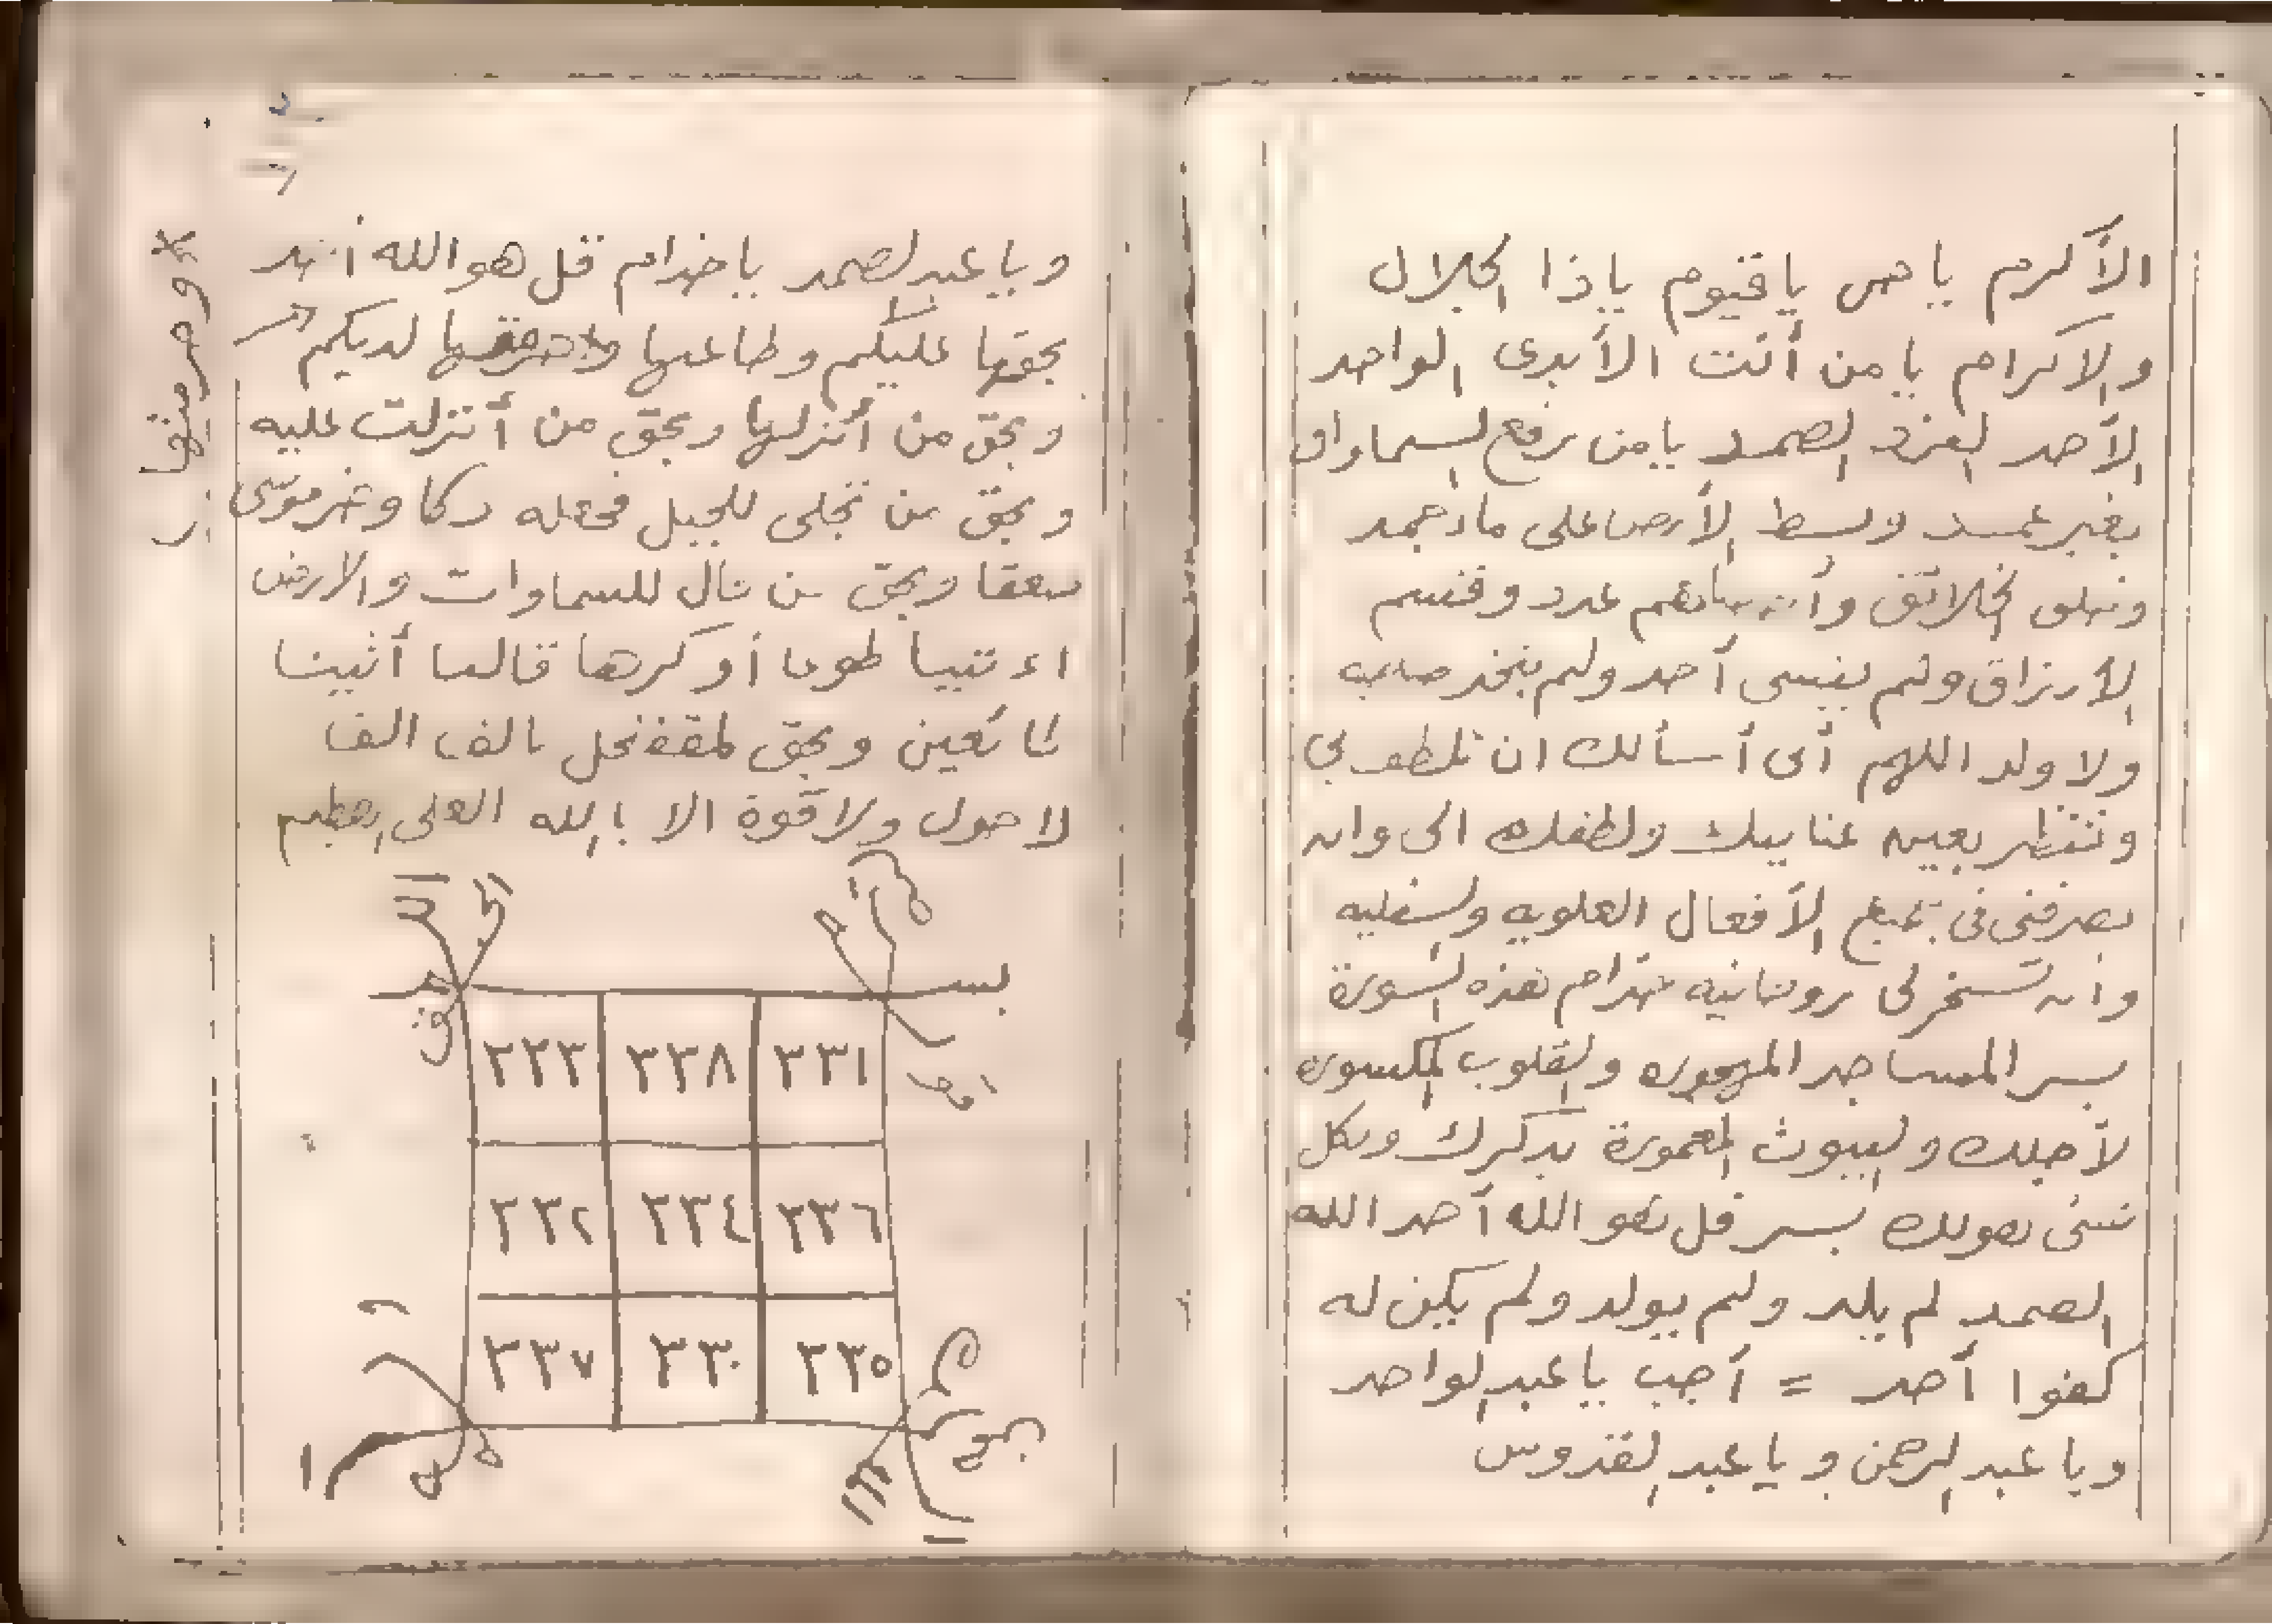 الأكرم يا حي يا قيوم يا ذا الجلال
والاكرام يا من أنت الأبدى الواحد
الأحد الفرد الصمد يا من رفع السماوات
بغير عمد وبسط الأرض على ماء جمد
وخلق الخلائق عدد وقسم
الأرزاق ولم ينسى أحد ولم يتخذ صاحبه
ولا ولد اللهم أنى أسألك ان تلطف بي
وتنظر بعين عنايتك ولطفك الى وان
تصرفنى فى جميع الأفعال العلويه والسفليه
وان تسخر لى روحانيه خدام هذه السورة
بسر المساجد المهجوره والقلوب المكسوره
لأجلك والبيوت المعمورة بذكرك وبكل
شىء هو لك بسر قل هو الله أحد الله
الصمد لم يلد ولم يولد ولم يكن له
كفوا أحد = أجب يا عبد الواحد
ويا عبد الرحمن ويا عبد القدوس
ويا عبد الصمد يا خدام قل هو الله أحد
بحقها عليكم وطاعتها لديكم
وبحق من أنزلها وبحق من أنزلت عليه
وبحق من تجلى للجبل فجعله دكا وخر موسى
صعقا وبحق من قال للسماوات والارض
اءتييا طوعا أو كرها قالتا أتينا
طائعين وبحق لمقفنجل بالف الف
لا حول ولا قوة الا بالله العلى العظيم
وحرمتها
بسم
٣٣١ ٣٣٨ ٣٣٣
٣٣٦ ٣٣٤ ٣٣٢
٣٣٥ ٣٣٠ ٣٣٧